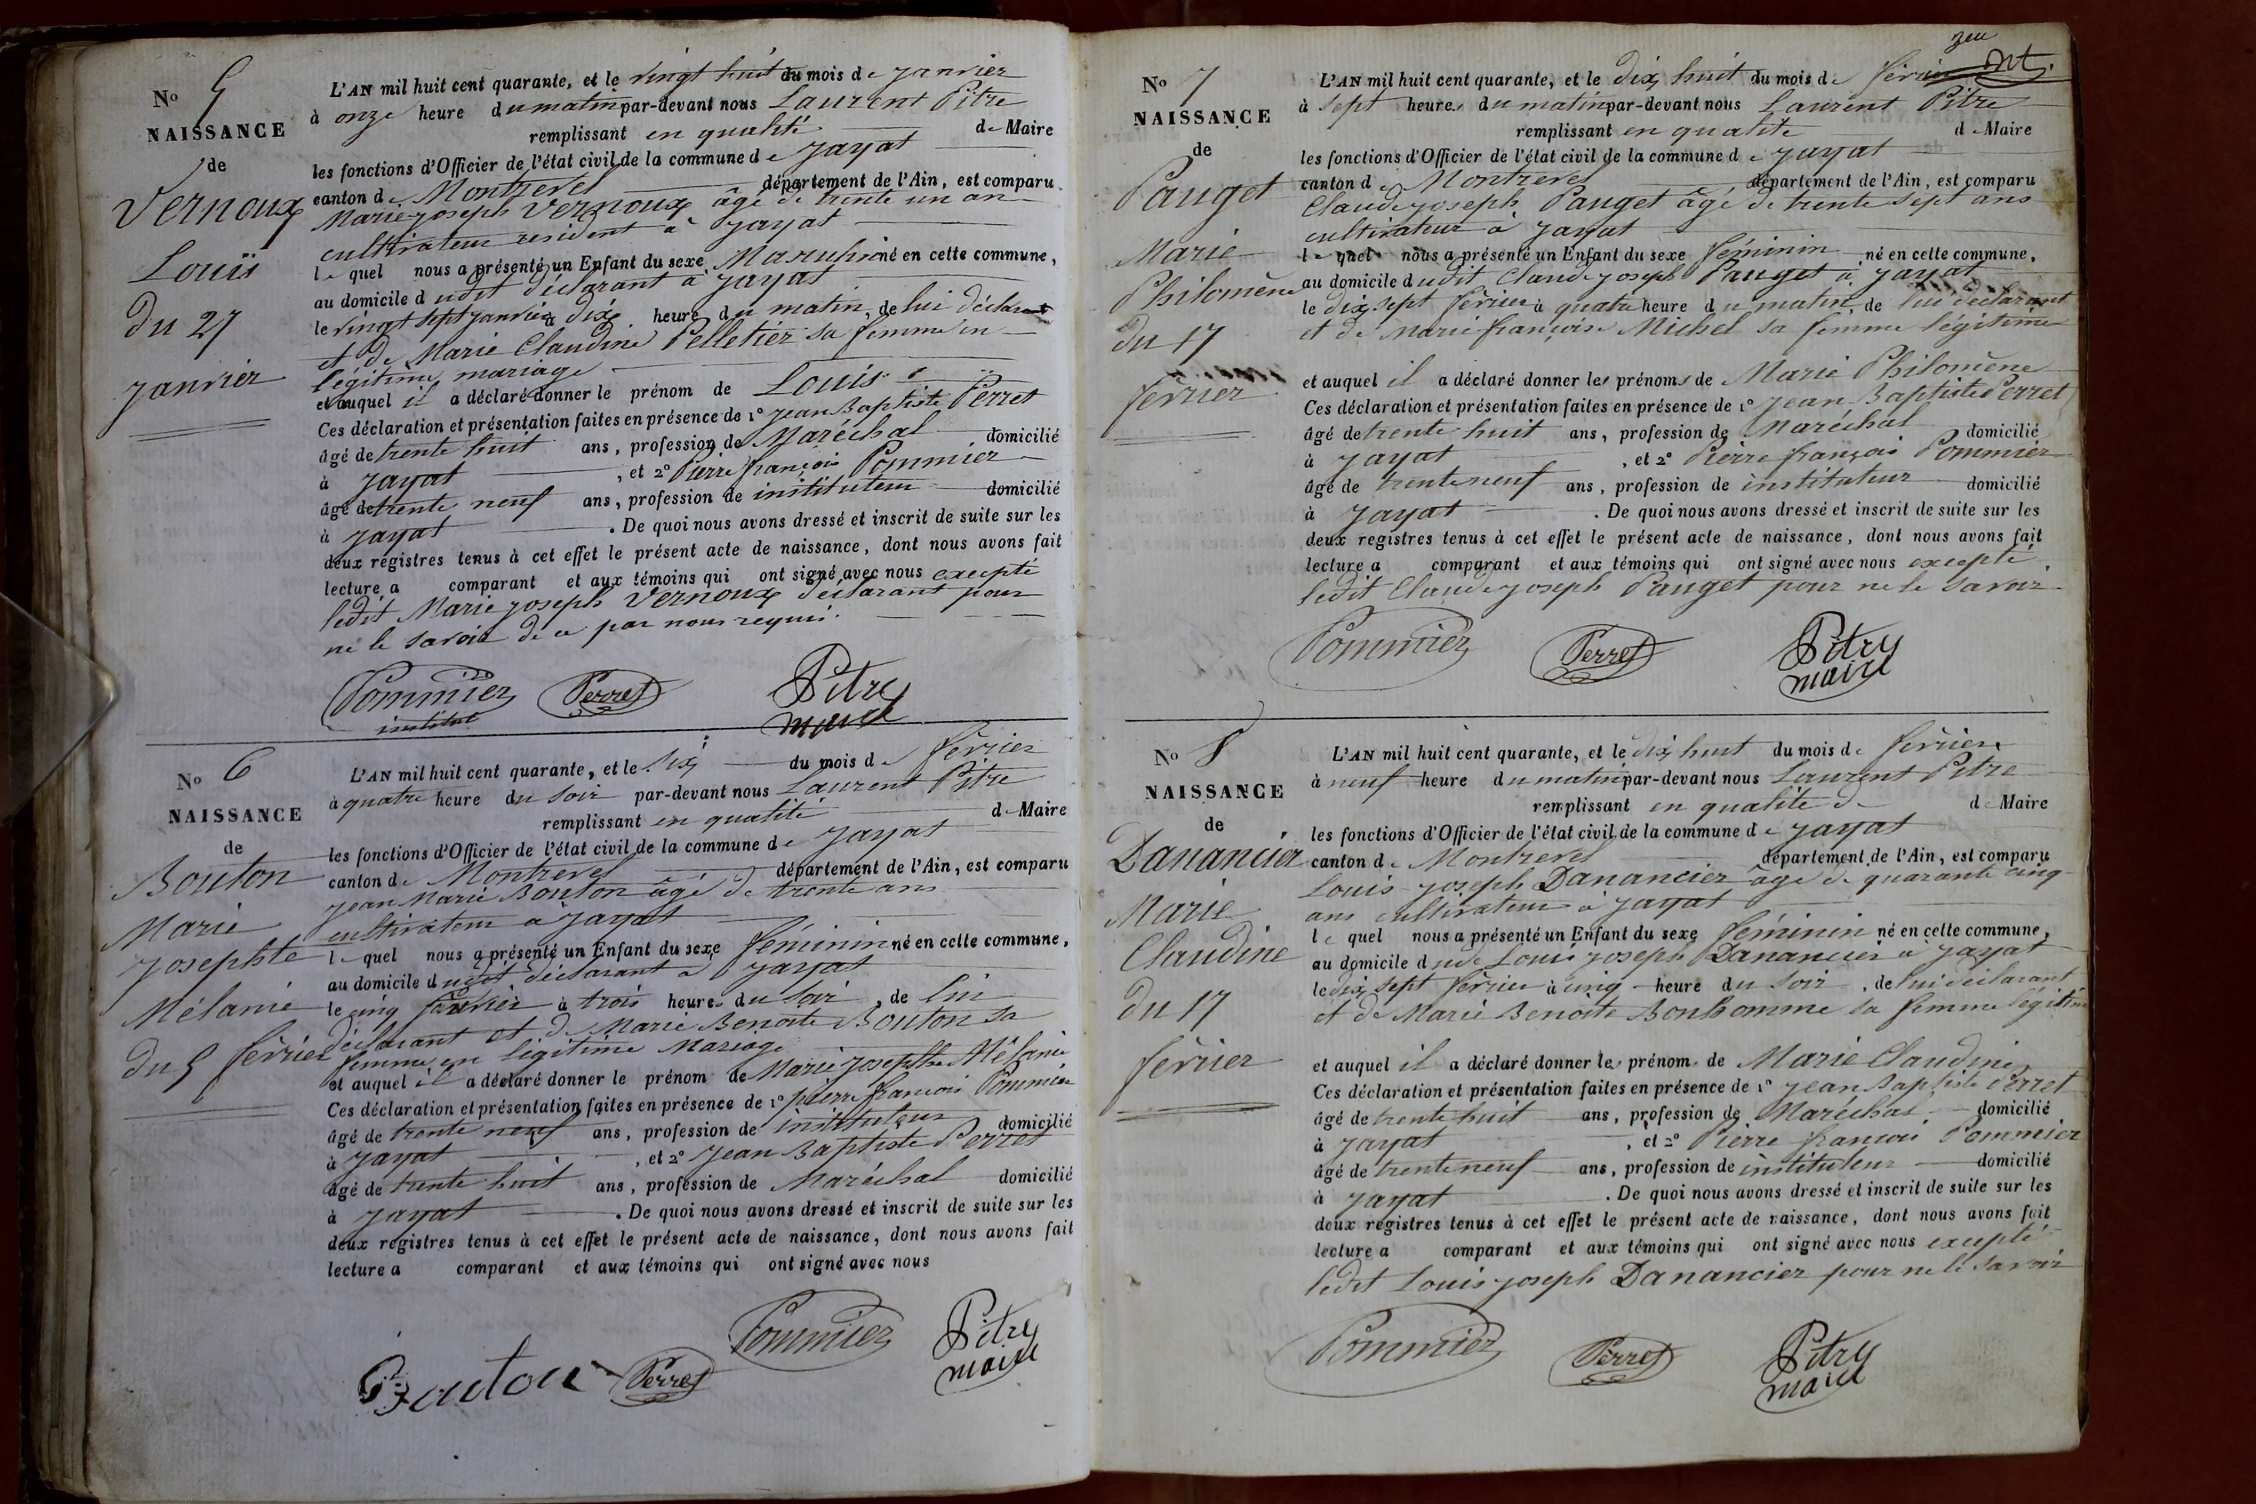 No 5
NAISSANCE
de
Vernoux
Louis
Du 27
janvier
L'AN mil huit cent quarante, et le vingt huit du mois de janvier
à onze heure du matin par-devant nous Laurent Pitre
remplissant en qualité de Maire
les fonctions d'Officier de l'état civil de la commune de jayat
canton de Montrevel département de l'Ain, est comparu
Marie joseph Vernoux âgé de trente un an
cultivateur resident à jayat
le quel nous a présenté un Enfant du sexe Masculin né en cette commune,
au domicile dudit déclarant à jayat
le vingt sept janvier à dix heure du matin, de lui déclarant
et de Marie Claudine Pelletier sa femme en
légitime mariage
et auquel il a déclaré donner le prénom de Louis
Ces déclaration et présentation faites en présence de 1° jean Baptiste Perret
âgé de trente huit ans, profession de Maréchal domicilié
à jayat, et 2° Pierre françois Pommier
âgé de trente neuf ans, profession de instituteur domicilié
à jayat. De quoi nous avons dressé et inscrit de suite sur les
deux registres tenus à cet effet le présent acte de naissance, dont nous avons fait
lecture a comparant et aux témoins qui ont signé avec nous excepté
ledit Marie joseph Vernoux déclarant pour
ne le savoir de ce par nous requis.
Pommier Perret Pitre
institut maire
No 6
NAISSANCE
de
Bouton
Marie
josephte
Mélanie
du 5 févrièr
L'AN mil huit cent quarante, et le six du mois de févrièr
à quatre heure du soir par-devant nous Laurent Pitre
remplissant en qualité de Maire
les fonctions d'Officier de l'état civil de la commune de jayat
canton de Montrevel département de l'Ain, est comparu
jean Marie Bouton âgé de trente ans
cultivateur à jayat
le quel nous a présenté un Enfant du sexe féminin né en cette commune,
au domicile dudit déclarant à jayat
le cinq févrièr à trois heures du soir, de lui
déclarant et de Marie Benoite Bouton sa
femme en légitime Mariage
et auquel il a déclaré donner le prénom de Marie josephte Mélanie
Ces déclaration et présentation faites en présence de 1° pierre françois Pommier
âgé de trente neuf ans, profession de instituteur domicilié
à jayat, et 2° jean Baptiste Perret
âgé de trente huit ans, profession de Maréchal domicilié
à jayat. De quoi nous avons dressé et inscrit de suite sur les
deux registres tenus à cet effet le présent acte de naissance, dont nous avons fait
lecture a comparant et aux témoins qui ont signé avec nous
Bouton Perret Pommier Pitre
maire
No 7
NAISSANCE
de
Pauget
Marie
Philomène
Du 17
févrièr
L'AN mil huit cent quarante, et le dix huit du mois de févrièr
à sept heures du matin par-devant nous Laurent Pitre
remplissant en qualité de Maire
les fonctions d'Officier de l'état civil de la commune de jayat
canton de Montrevel département de l'Ain, est comparu
Claude joseph Pauget âgé de trente sept ans
cultivateur à jayat
le quel nous a présenté un Enfant du sexe féminin né en cette commune,
au domicile dudit Claude joseph Pauget à jayat
le dix sept févrièr à quatre heure du matin, de lui déclarant
et de Marie françoise Michel sa femme légitime
et auquel il a déclaré donner les prénoms de Marie Philomène
Ces déclaration et présentation faites en présence de 1° jean Baptiste Perret
âgé de trente huit ans, profession de Maréchal domicilié
à jayat, et 2° Pierre françois Pommier
âgé de trente neuf ans, profession de instituteur domicilié
à jayat. De quoi nous avons dressé et inscrit de suite sur les
deux registres tenus à cet effet le présent acte de naissance, dont nous avons fait
lecture a comparant et aux témoins qui ont signé avec nous excepté
ledit Claude joseph Pauget pour ne le savoir
Pommier Perret Pitre
maire
No 8
NAISSANCE
de
Danancier
Marie
Claudine
du 17
févrièr
L'AN mil huit cent quarante, et le dix huit du mois de févrièr
à neuf heure du matin par-devant nous Laurent Pitre
remplissant en qualité de de Maire
les fonctions d'Officier de l'état civil de la commune de jayat
canton de Montrevel département de l'Ain, est comparu
Louis joseph Danancier âgé de quarante cinq
ans cultivateur à jayat
le quel nous a présenté un Enfant du sexe féminin né en cette commune,
au domicile dude Louis joseph Danancier à jayat
le dix sept févrièr à cinq heure du soir, de lui déclarant
et de Marie Benoite Bonhomme sa femme légitime
et auquel il a déclaré donner les prénom de Marie Claudine
Ces déclaration et présentation faites en présence de 1° jean Baptiste Perret
âgé de trente huit ans, profession de Maréchal domicilié
à jayat, et 2° Pierre françois Pommier
âgé de trente neuf ans, profession de instituteur domicilié
à jayat. De quoi nous avons dressé et inscrit de suite sur les
deux registres tenus à cet effet le présent acte de naissance, dont nous avons fait
lecture a comparant et aux témoins qui ont signé avec nous excepté
ledit Louis joseph Danancier pour ne le savoir
Pommier Perret Pitre
maire